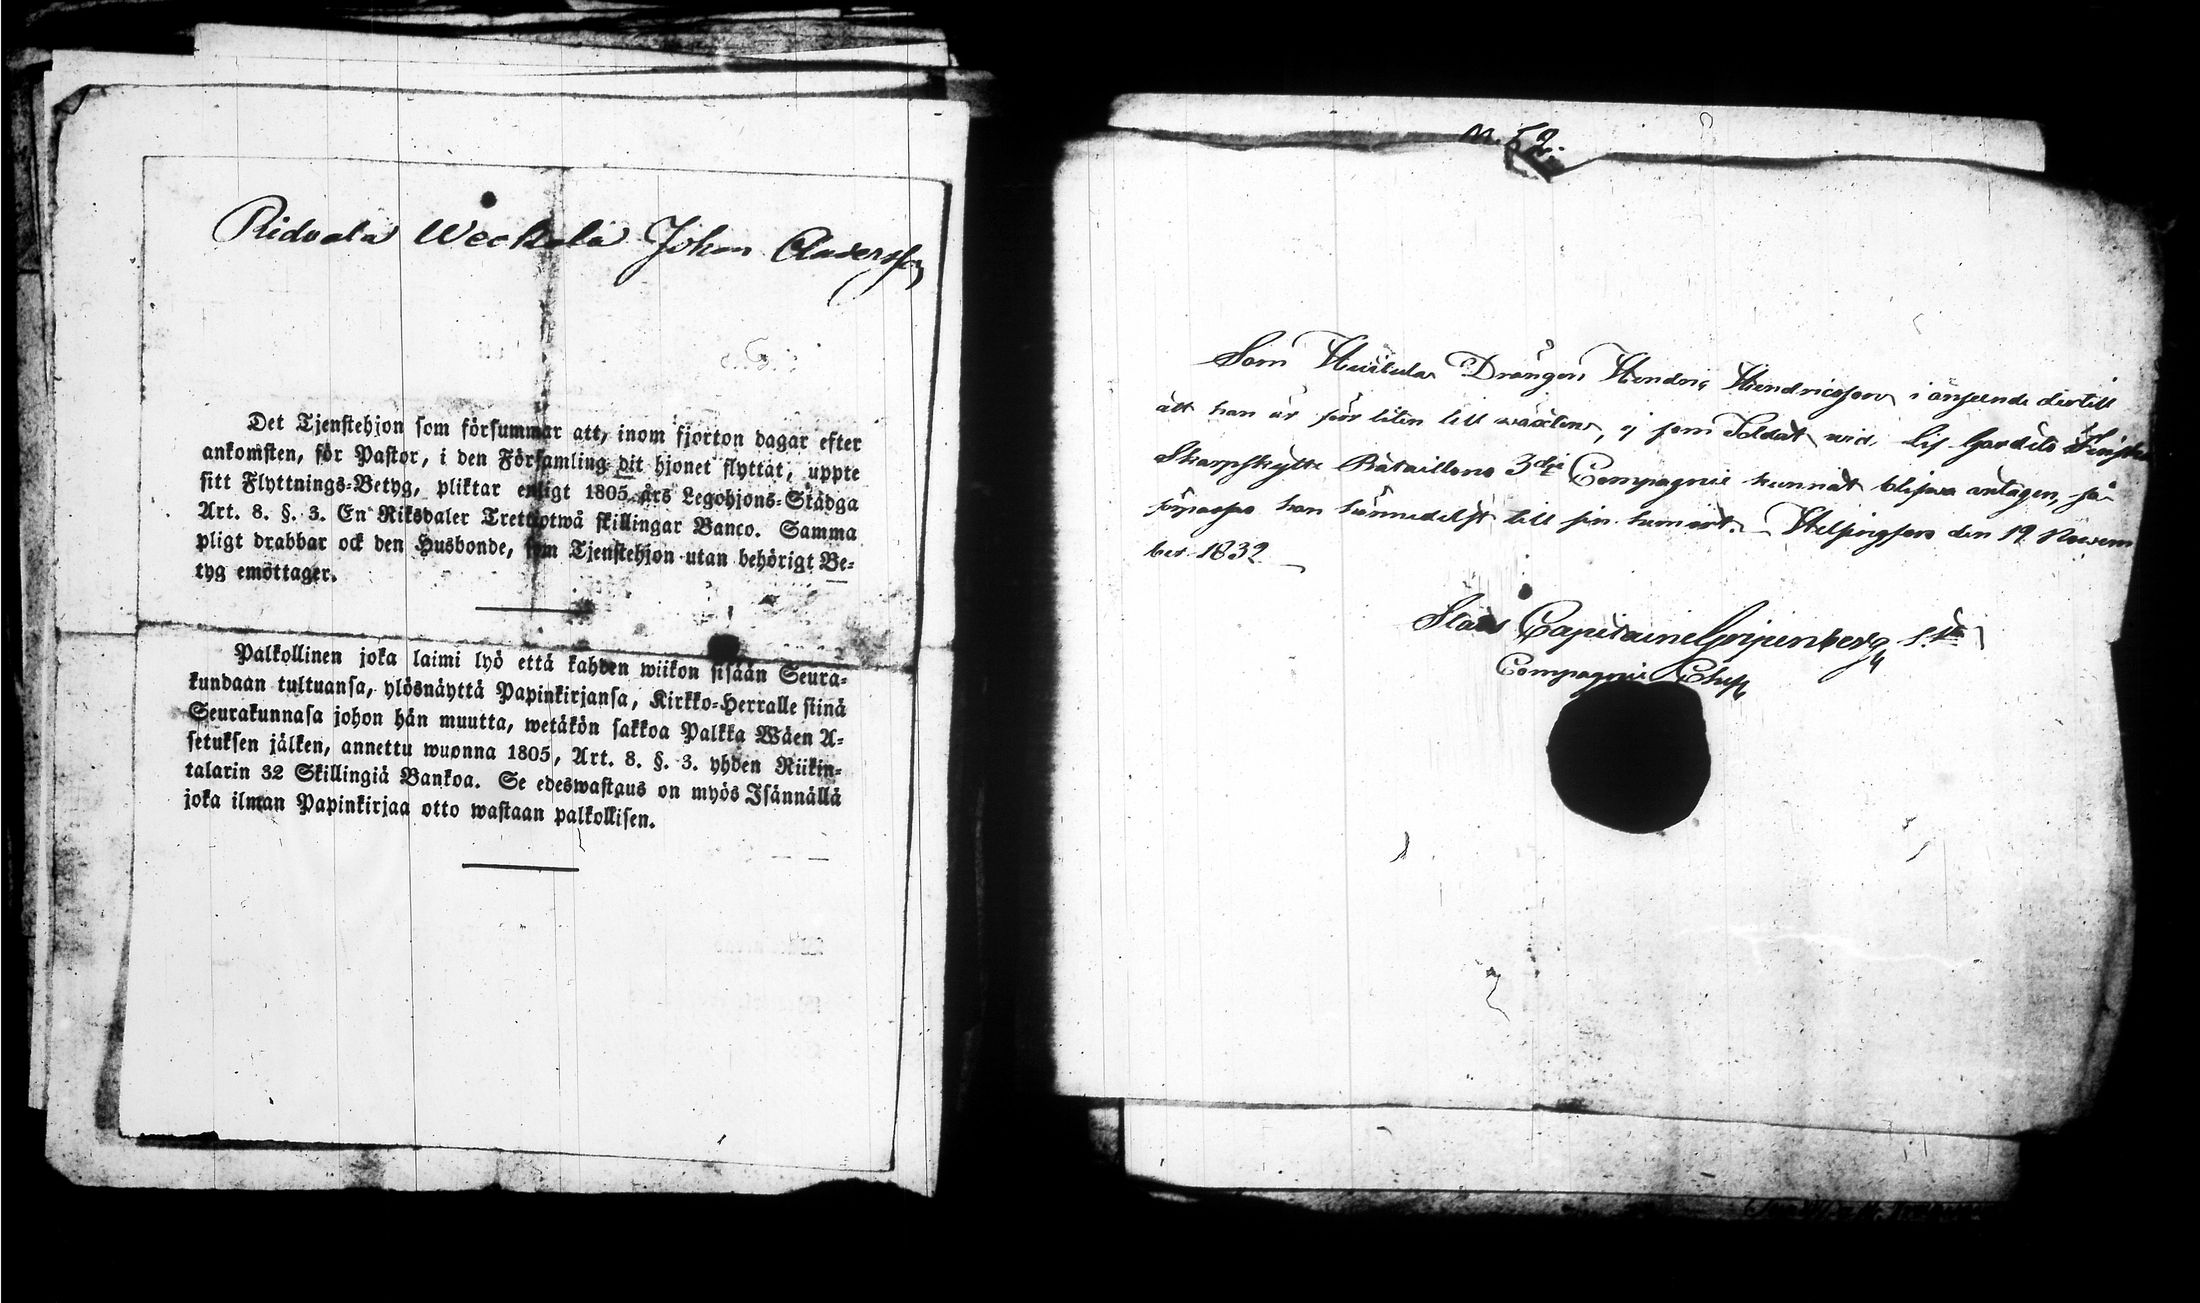 Ridvala Weckola Johan Andersson
Det Tjenstehjon som försummar att, inom fjorton dagar efter
ankomsten, för Pastor, i den Församling dit hjonet flyttat, uppte
sitt Flyttnings-Betyg, pliktar enligt 1805 års Legohjons-Stadga
Art. 8. §. 3. En Riksdaler Trettiotwå skillingar Banco. Samma
pligt drabbar ock den Husbonde, som Tjenstehjon utan behörigt Be-
tyg emottager.
Palkollinen joka laimi lyö että kahden wiikon sisään Seura-
kundaan tultuansa, ylösnäyttä Papinkirjansa, Kirkko-Herralle siinä
Seurakunnasa johon hän muutta, wetäkön sakkoa Palkka Wäen A-
setuksen jälken, annettu wuonna 1805, Art. 8. §. 3. yhden Riikin-
talarin 32 Skillingiä Bankoa. Se edeswastaus on myös Isännällä
joka ilman Papinkirjaa otto wastaan palkollisen.
N. 52.
Som Drängen Hendric Hendricsson i anseende dertill
att han är för liten till wäxten, ej som Soldat wid Lif Gardets Finska
Skarpskytte Bataillons 3dje Compagnie kunnat blifwa antagen, så
förpassas han härmedelst till sin hemort. Helsingfors den 19 Novem
ber 1832
Stabs Capitaine Gripenberg
Compagnie Chef